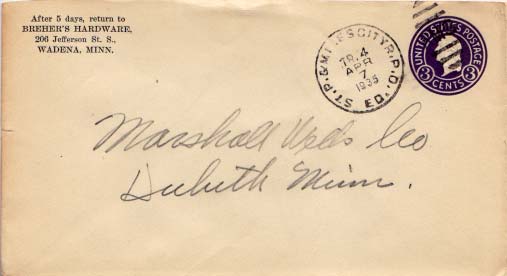 After 5 days, return to
BREHER'S HARDWARE,
206 Jefferson St. S.,
WADENA, MINN.
ST. P. & MILES CITY R.P.O.
TR. 4
APR
7
1935
ED.
UNITED STATES POSTAGE
3 CENTS 3
Marshall Wells Co
Duluth Minn.